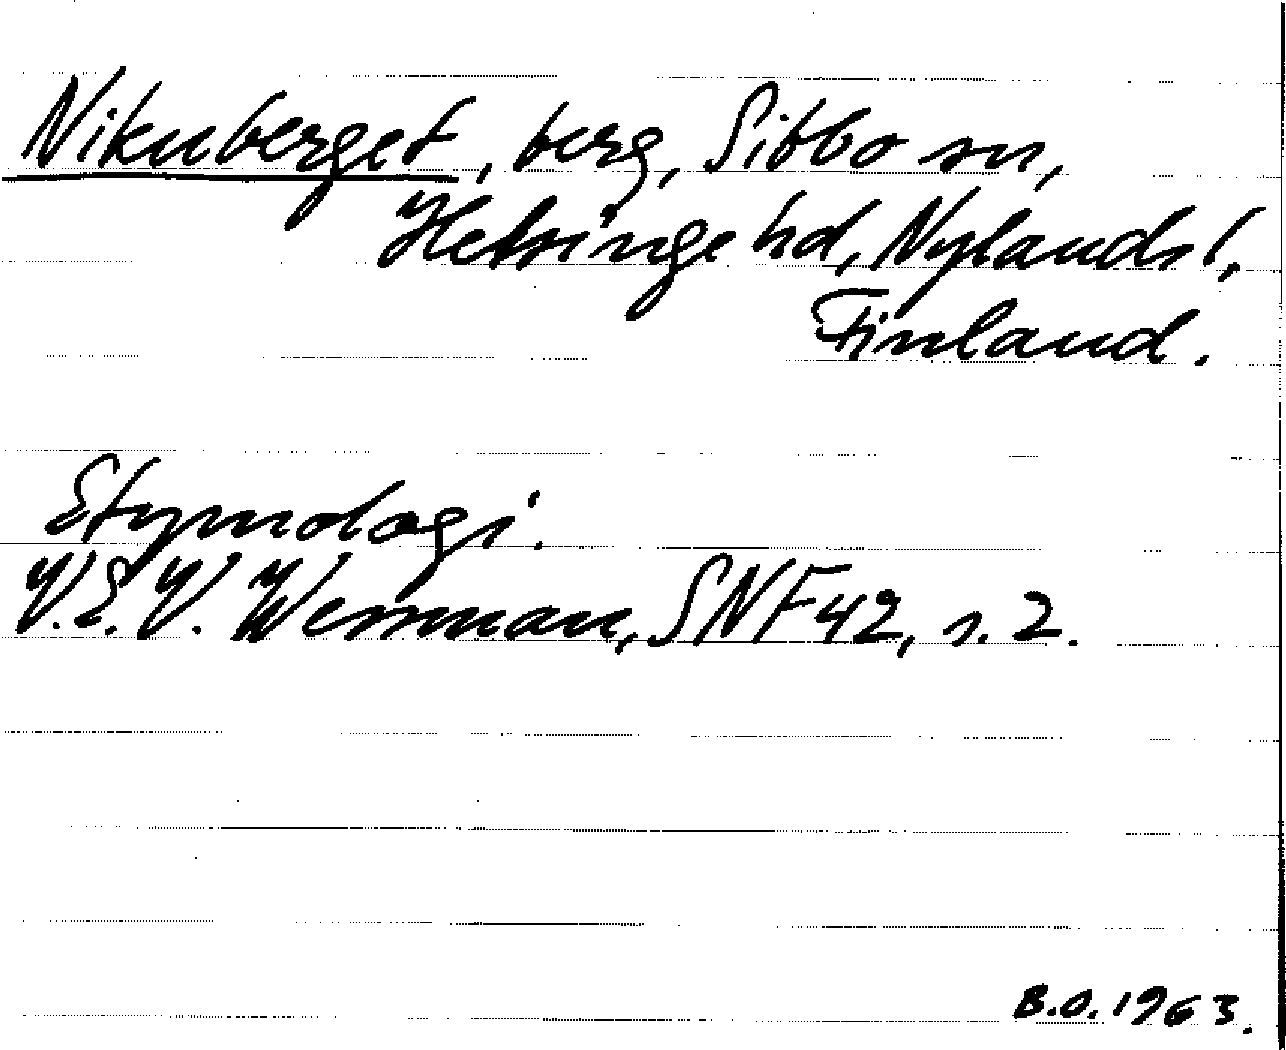 Nikuberget, berg, Sibbo sn,
Helsinge hd, Nylands l,
Finland.
Etymologi.
V.E.V. Wessman, SNF 42, s. 2.
B.O. 1963.